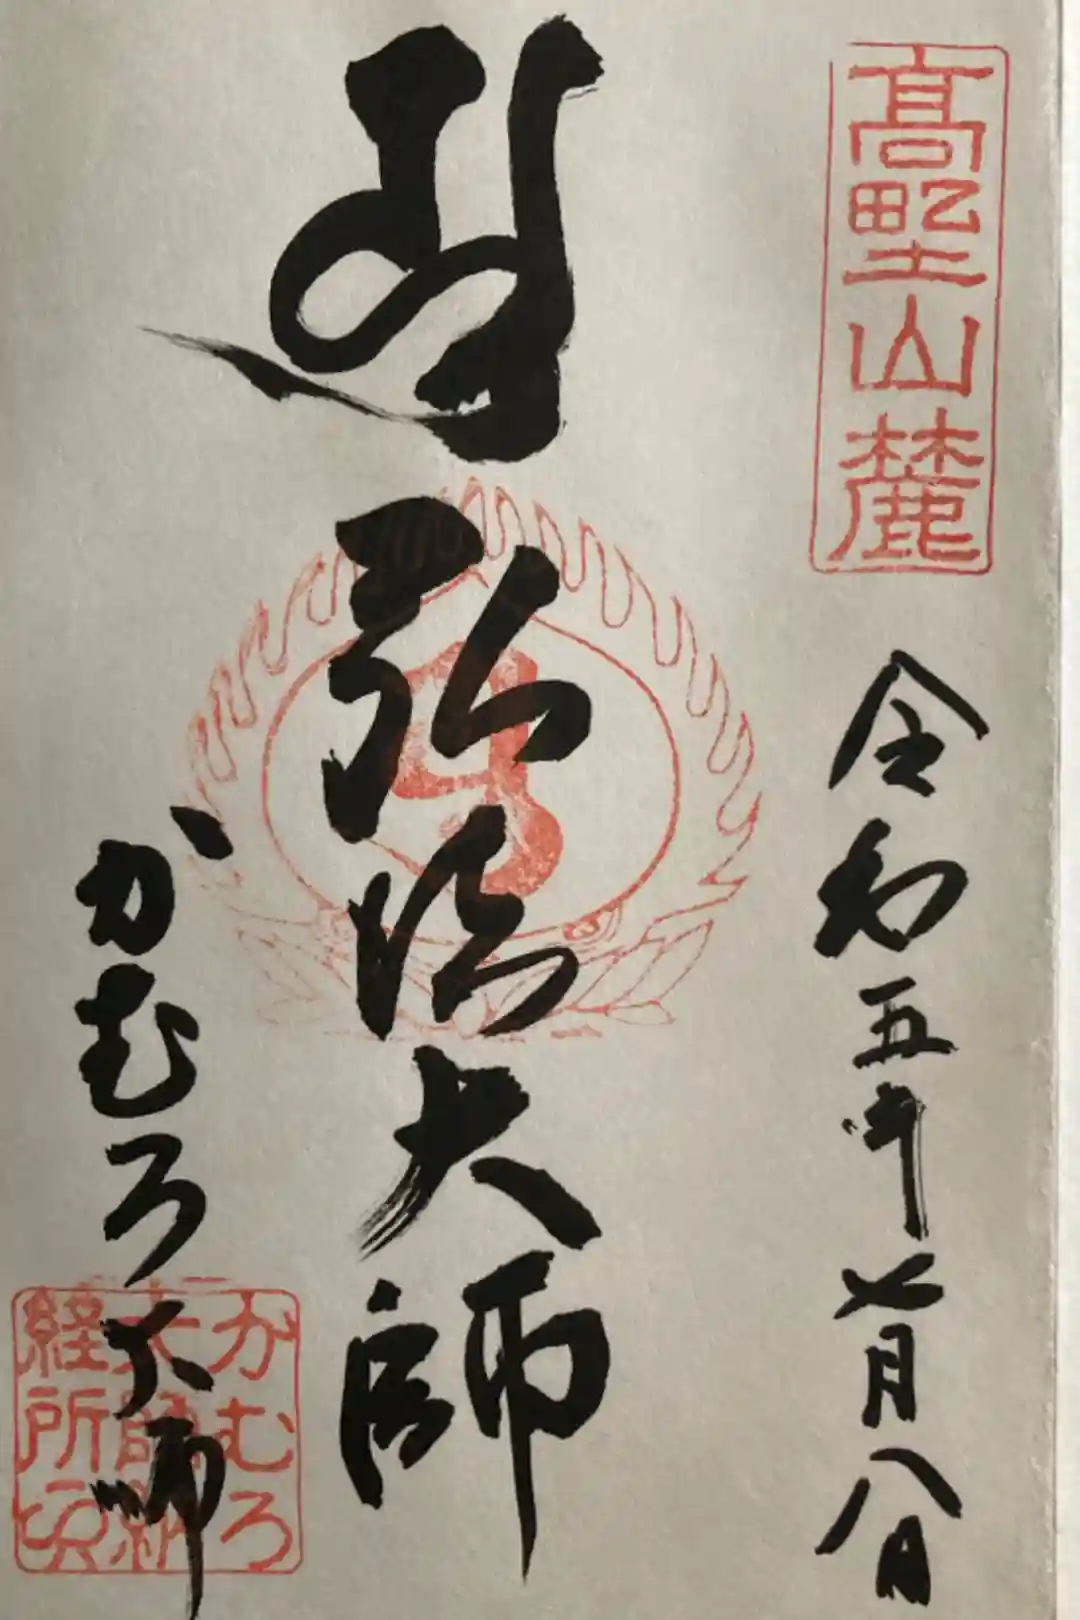 髙野山麓
令和五年七月八日
弘法大師
かむろ大師
かむろ
大師納
経所